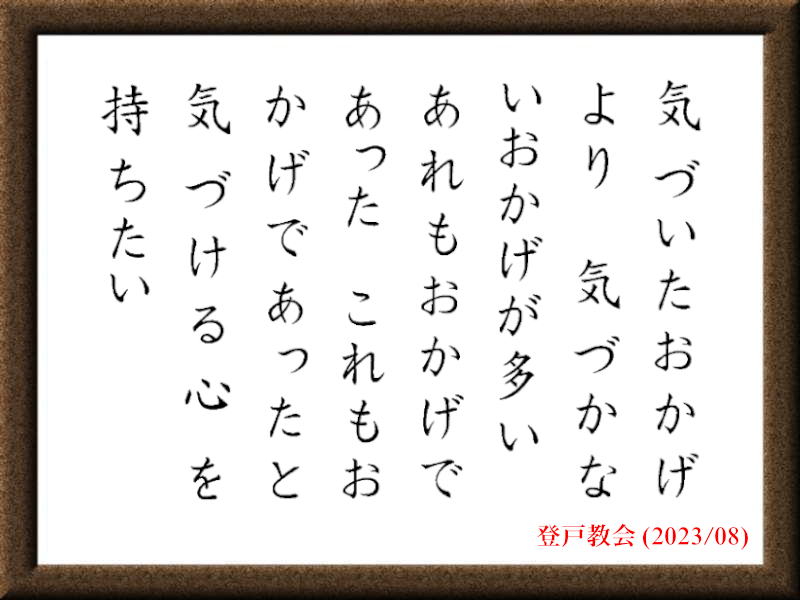 気づいたおかげ
より　気づかな
いおかげが多い
あれもおかげで
あった　これもお
かげであったと
気づける心を
持ちたい
登戸教会 (2023/08)